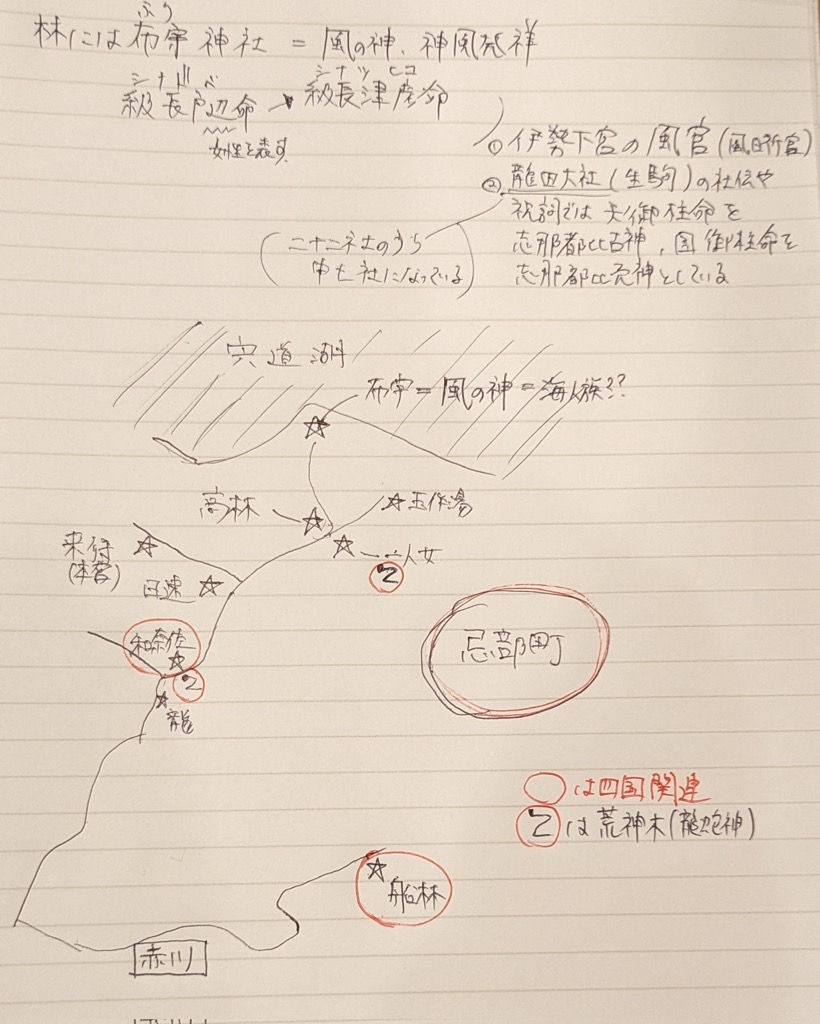 ふう
林には布宇神社 = 風の神、神風発祥
シナトベ シナツヒコ
級長戸辺命 級長津彦命
女性を表す
① 伊勢下宮の風宮(風日祈宮)
② 龍田大社(生駒)の社伝や
祝詞では天御柱命を
志那都比古神、国御柱命を
志那都比売神としている
(二十二社のうち
中七社になっている)
宍道湖
布宇=風の神=海人族??
高林
玉作湯
来待
(本宮)
日速
一二人女
2
和奈佐
2
龍
忌部町
○は四国関連
2は荒神木(龍蛇神)
船林
赤川